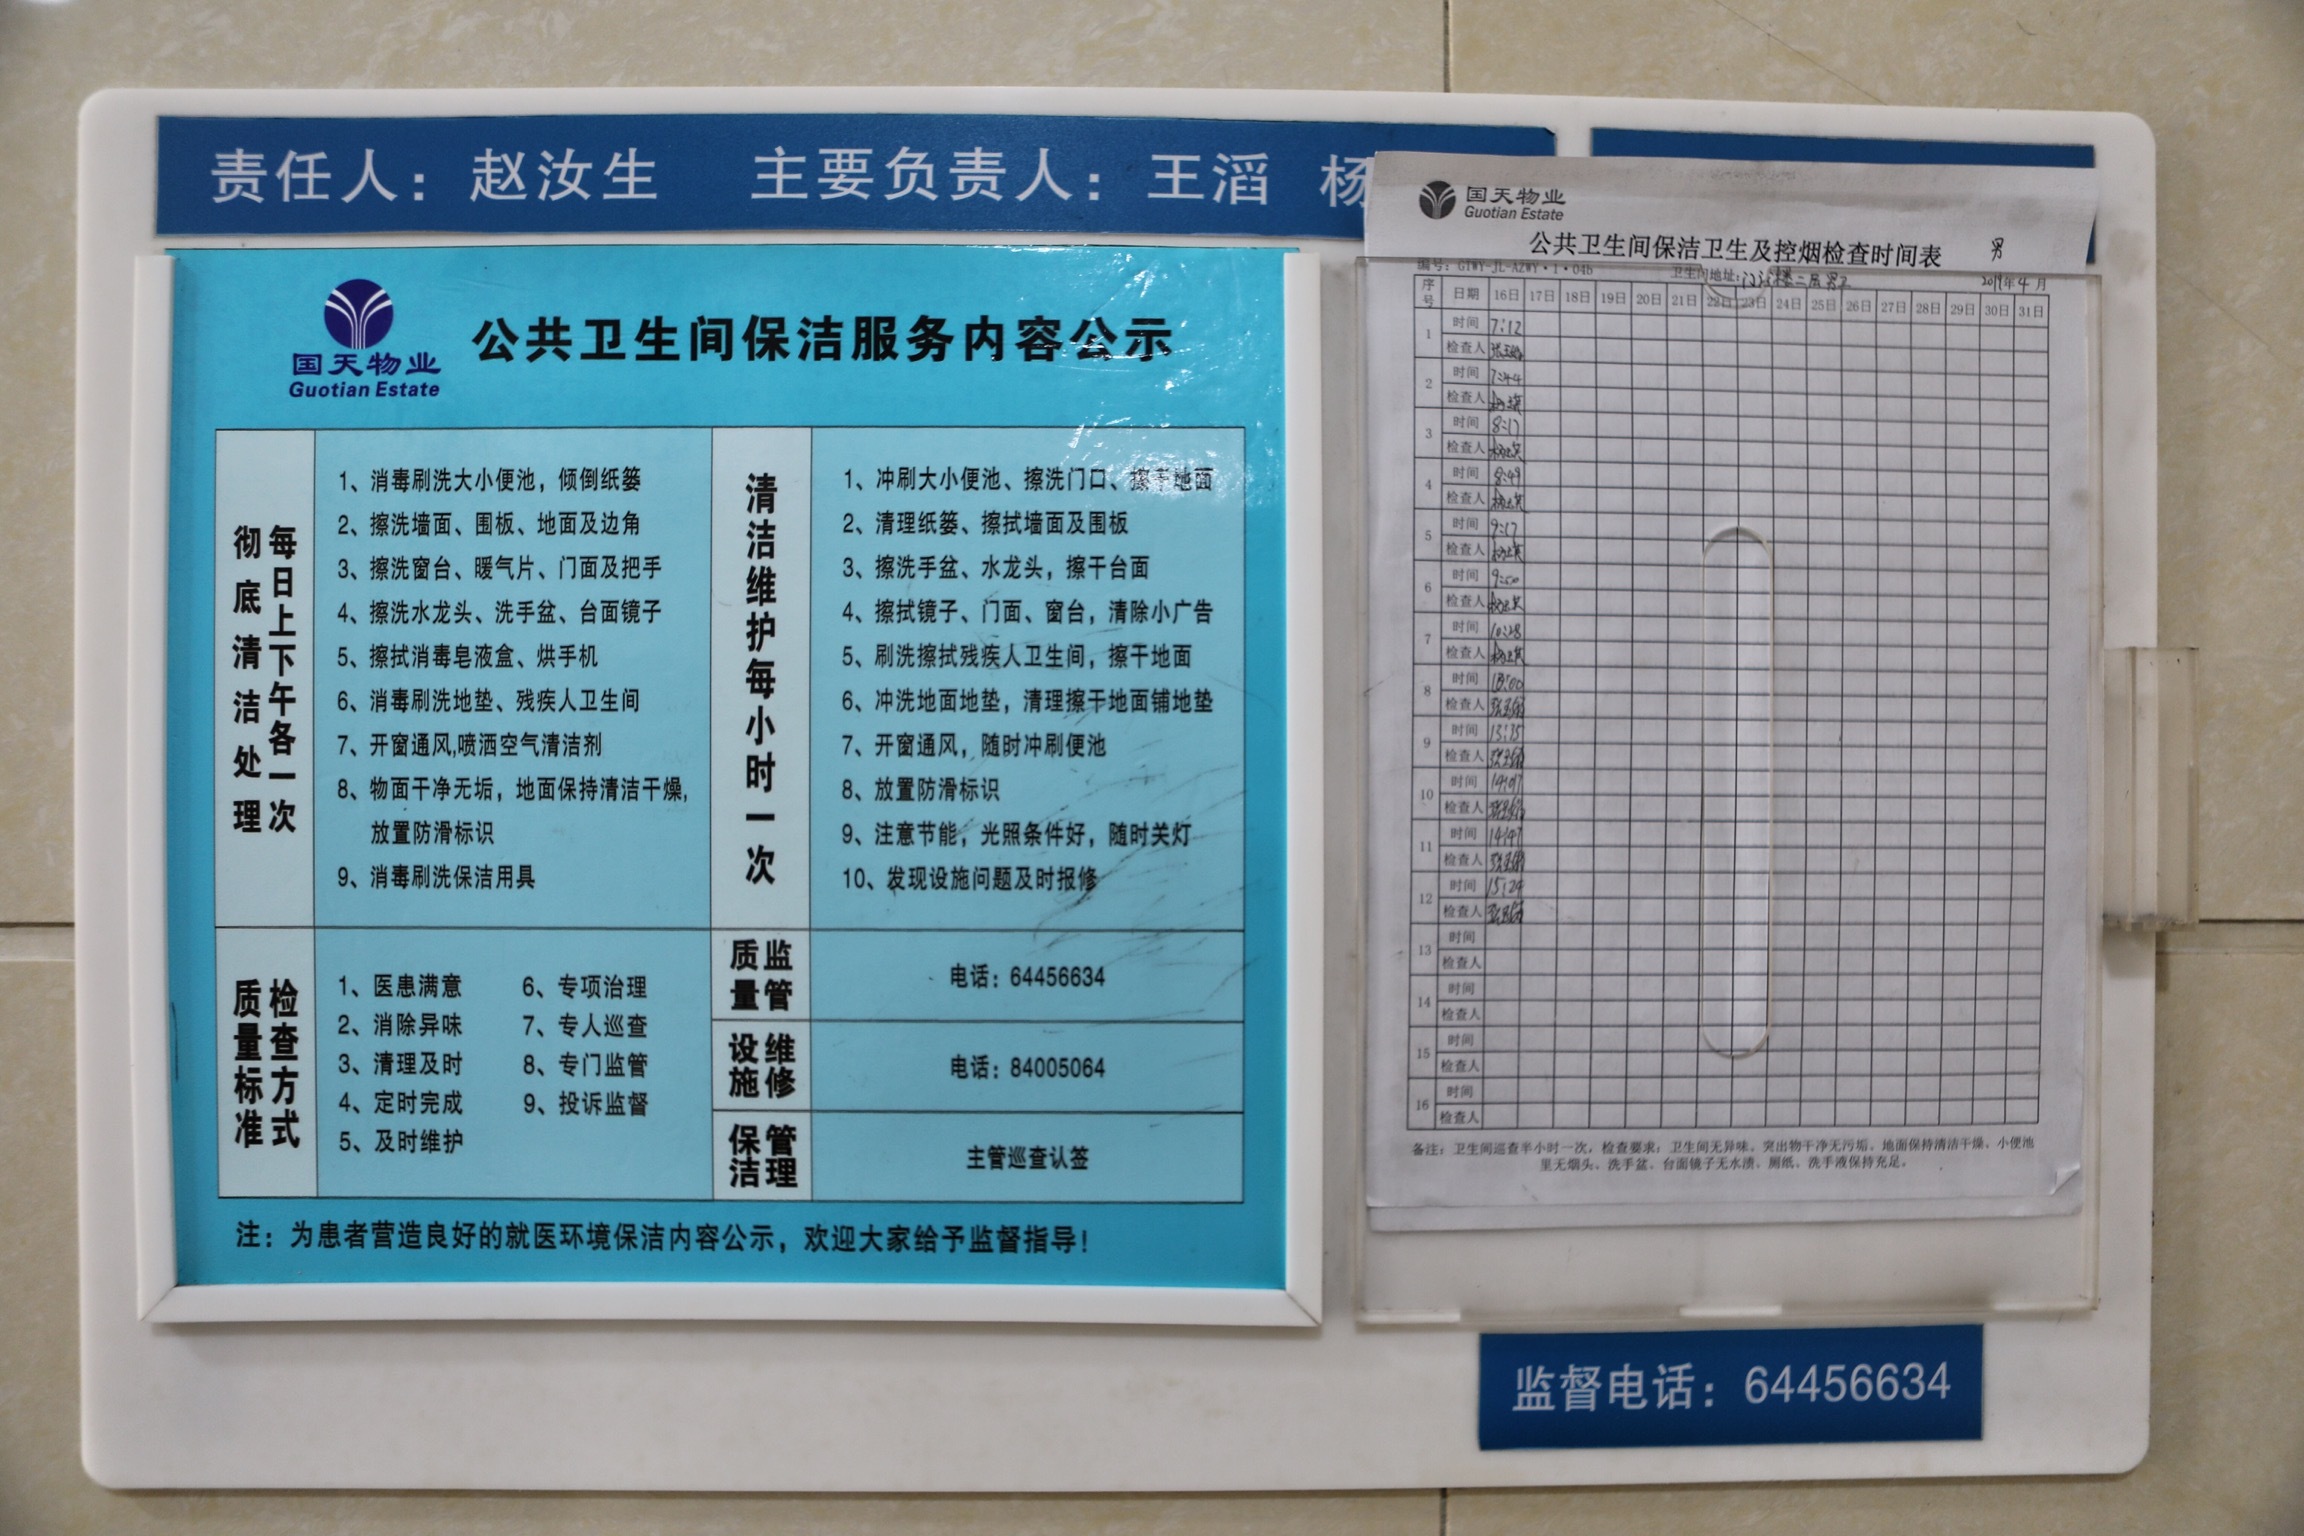 责任人：赵汝生 主要负责人：王滔 杨
国天物业
Guotian Estate
公共卫生间保洁服务内容公示
每日上下午各一次
彻底清洁处理
1、消毒刷洗大小便池，倾倒纸篓
2、擦洗墙面、围板、地面及边角
3、擦洗窗台、暖气片、门面及把手
4、擦洗水龙头、洗手盆、台面镜子
5、擦拭消毒皂液盒、烘手机
6、消毒刷洗地垫、残疾人卫生间
7、开窗通风,喷洒空气清洁剂
8、物面干净无垢，地面保持清洁干燥，
放置防滑标识
9、消毒刷洗保洁用具
清洁维护每小时一次
1、冲刷大小便池、擦洗门口、擦干地面
2、清理纸篓、擦拭墙面及围板
3、擦洗手盆、水龙头，擦干台面
4、擦拭镜子、门面、窗台，清除小广告
5、刷洗擦拭残疾人卫生间，擦干地面
6、冲洗地面地垫，清理擦干地面铺地垫
7、开窗通风，随时冲刷便池
8、放置防滑标识
9、注意节能，光照条件好，随时关灯
10、发现设施问题及时报修
检查方式
质量标准
1、医患满意 6、专项治理
2、消除异味 7、专人巡查
3、清理及时 8、专门监管
4、定时完成 9、投诉监督
5、及时维护
质量监管
电话：64456634
设施维修
电话：84005064
保洁管理
主管巡查认签
注：为患者营造良好的就医环境保洁内容公示，欢迎大家给予监督指导！
国天物业
Guotian Estate
公共卫生间保洁卫生及控烟检查时间表 男
编号：GTWY-JL-AZWY·1·04b 卫生间地址： 2019年4月
序号 日期 16日 17日 18日 19日 20日 21日 22日 23日 24日 25日 26日 27日 28日 29日 30日 31日
1 时间 7:12
检查人
2 时间 7:44
检查人
3 时间 8:17
检查人
4 时间 8:49
检查人
5 时间 9:17
检查人
6 时间 9:50
检查人
7 时间 10:28
检查人
8 时间
检查人
9 时间 13:35
检查人
10 时间
检查人
11 时间 14:47
检查人
12 时间 15:24
检查人
13 时间
检查人
14 时间
检查人
15 时间
检查人
16 时间
检查人
备注：卫生间巡查半小时一次，检查要求：卫生间无异味、突出物干净无污垢、地面保持清洁干燥、小便池
里无烟头、洗手盆、台面镜子无水渍、厕纸、洗手液保持充足。
监督电话：64456634